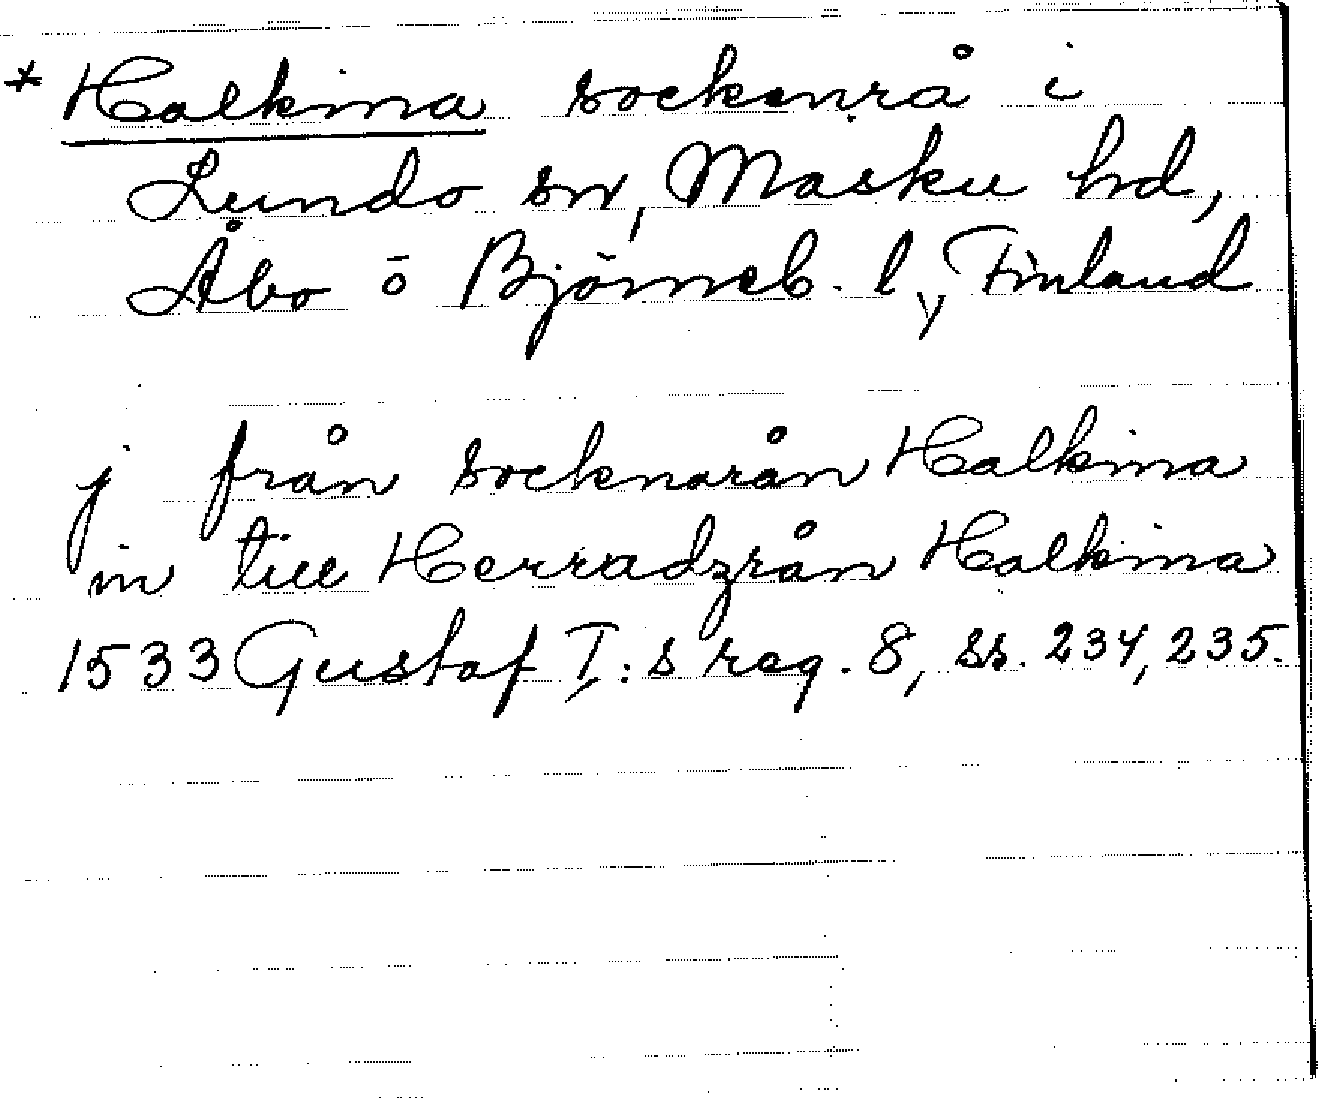 * Halkima sockenrå i
Lundo sn, Masku hd,
Åbo o Björneb. l., Finland
j från socknarån Halkima
in till Herradzrån Halkima
1533 Gustaf I:s reg. 8, ss. 234, 235.